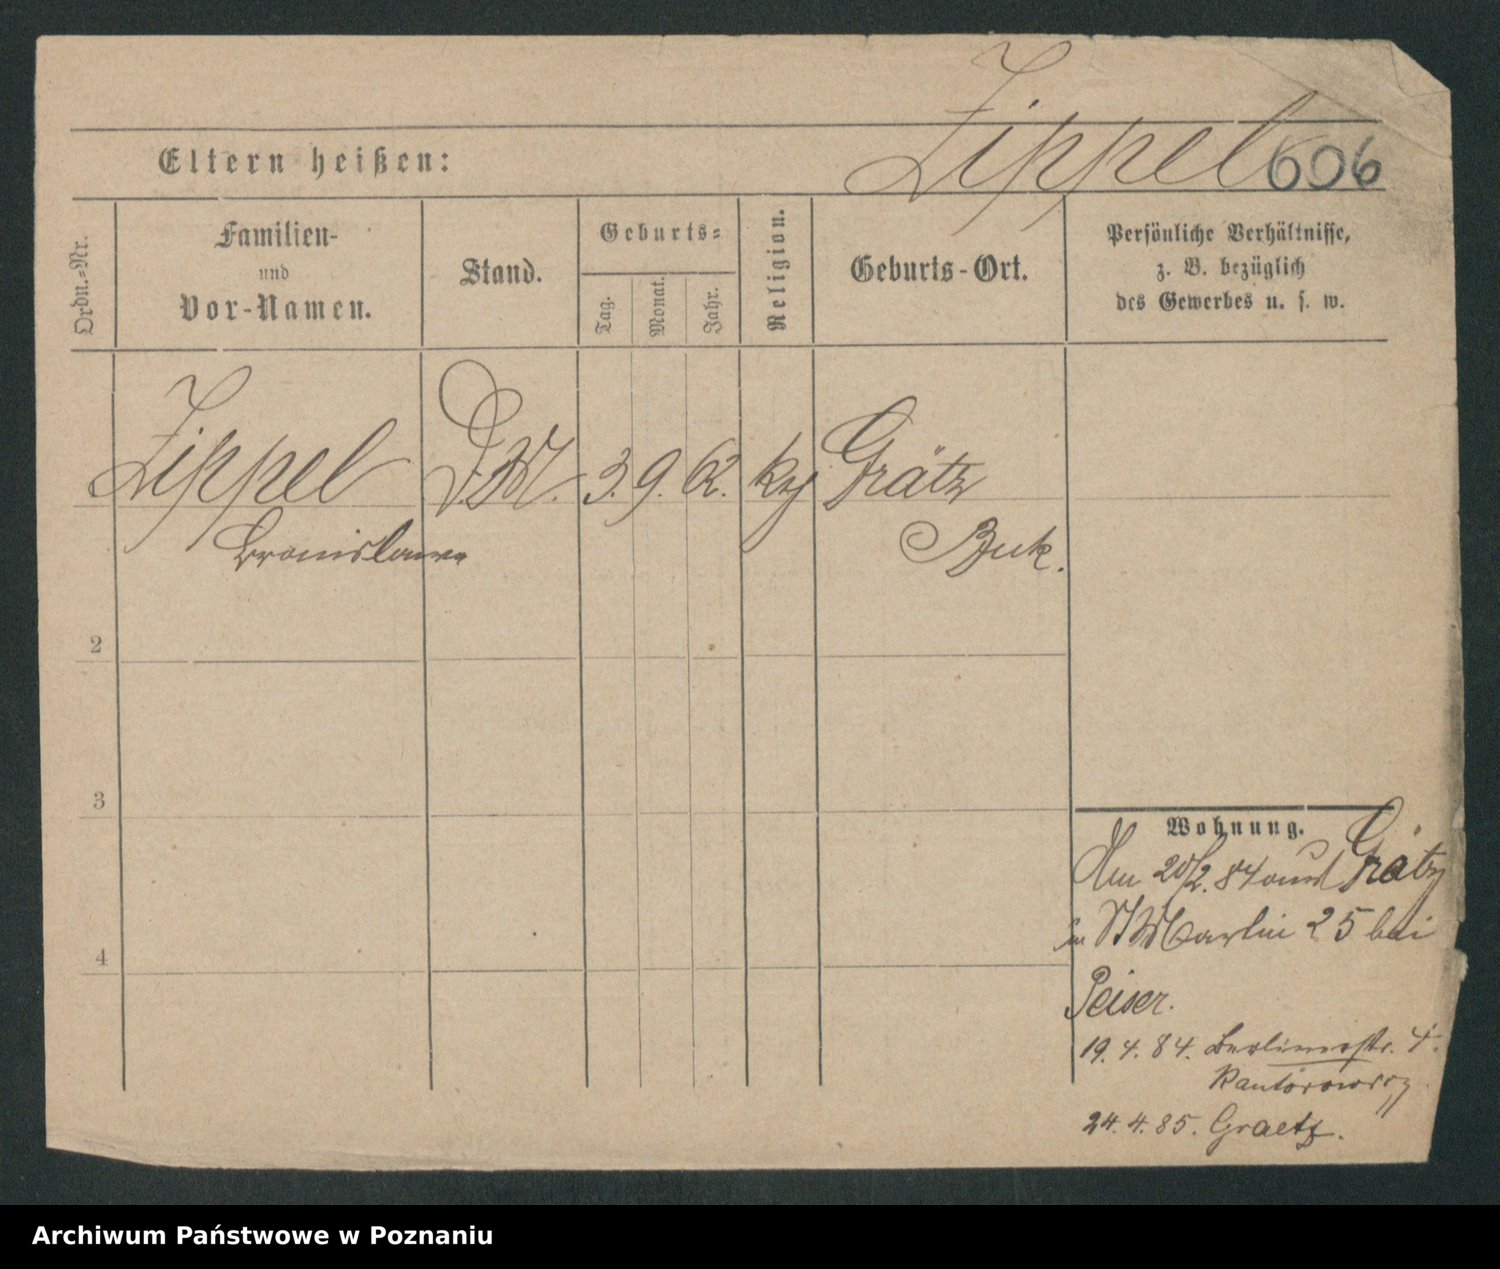 Zippel 606
Eltern heißen:
Ordn.-Nr.
Familien-
und
Vor-Namen.
Stand.
Geburts-
Tag.
Monat.
Jahr.
Religion.
Geburts-Ort.
Persönliche Verhältnisse,
z. B. bezüglich
des Gewerbes u. s. w.
Zippel D.M. 3. 9. 62. kg Grätz
Bronislawa Buk.
2
3
4
Wohnung.
Am 20/2. 84 aus Grätz
in St Martin 25 bei
Peiser.
19. 4. 84. Berlinerstr. 4.
Kantorowicz
24. 4. 85. Graetz.